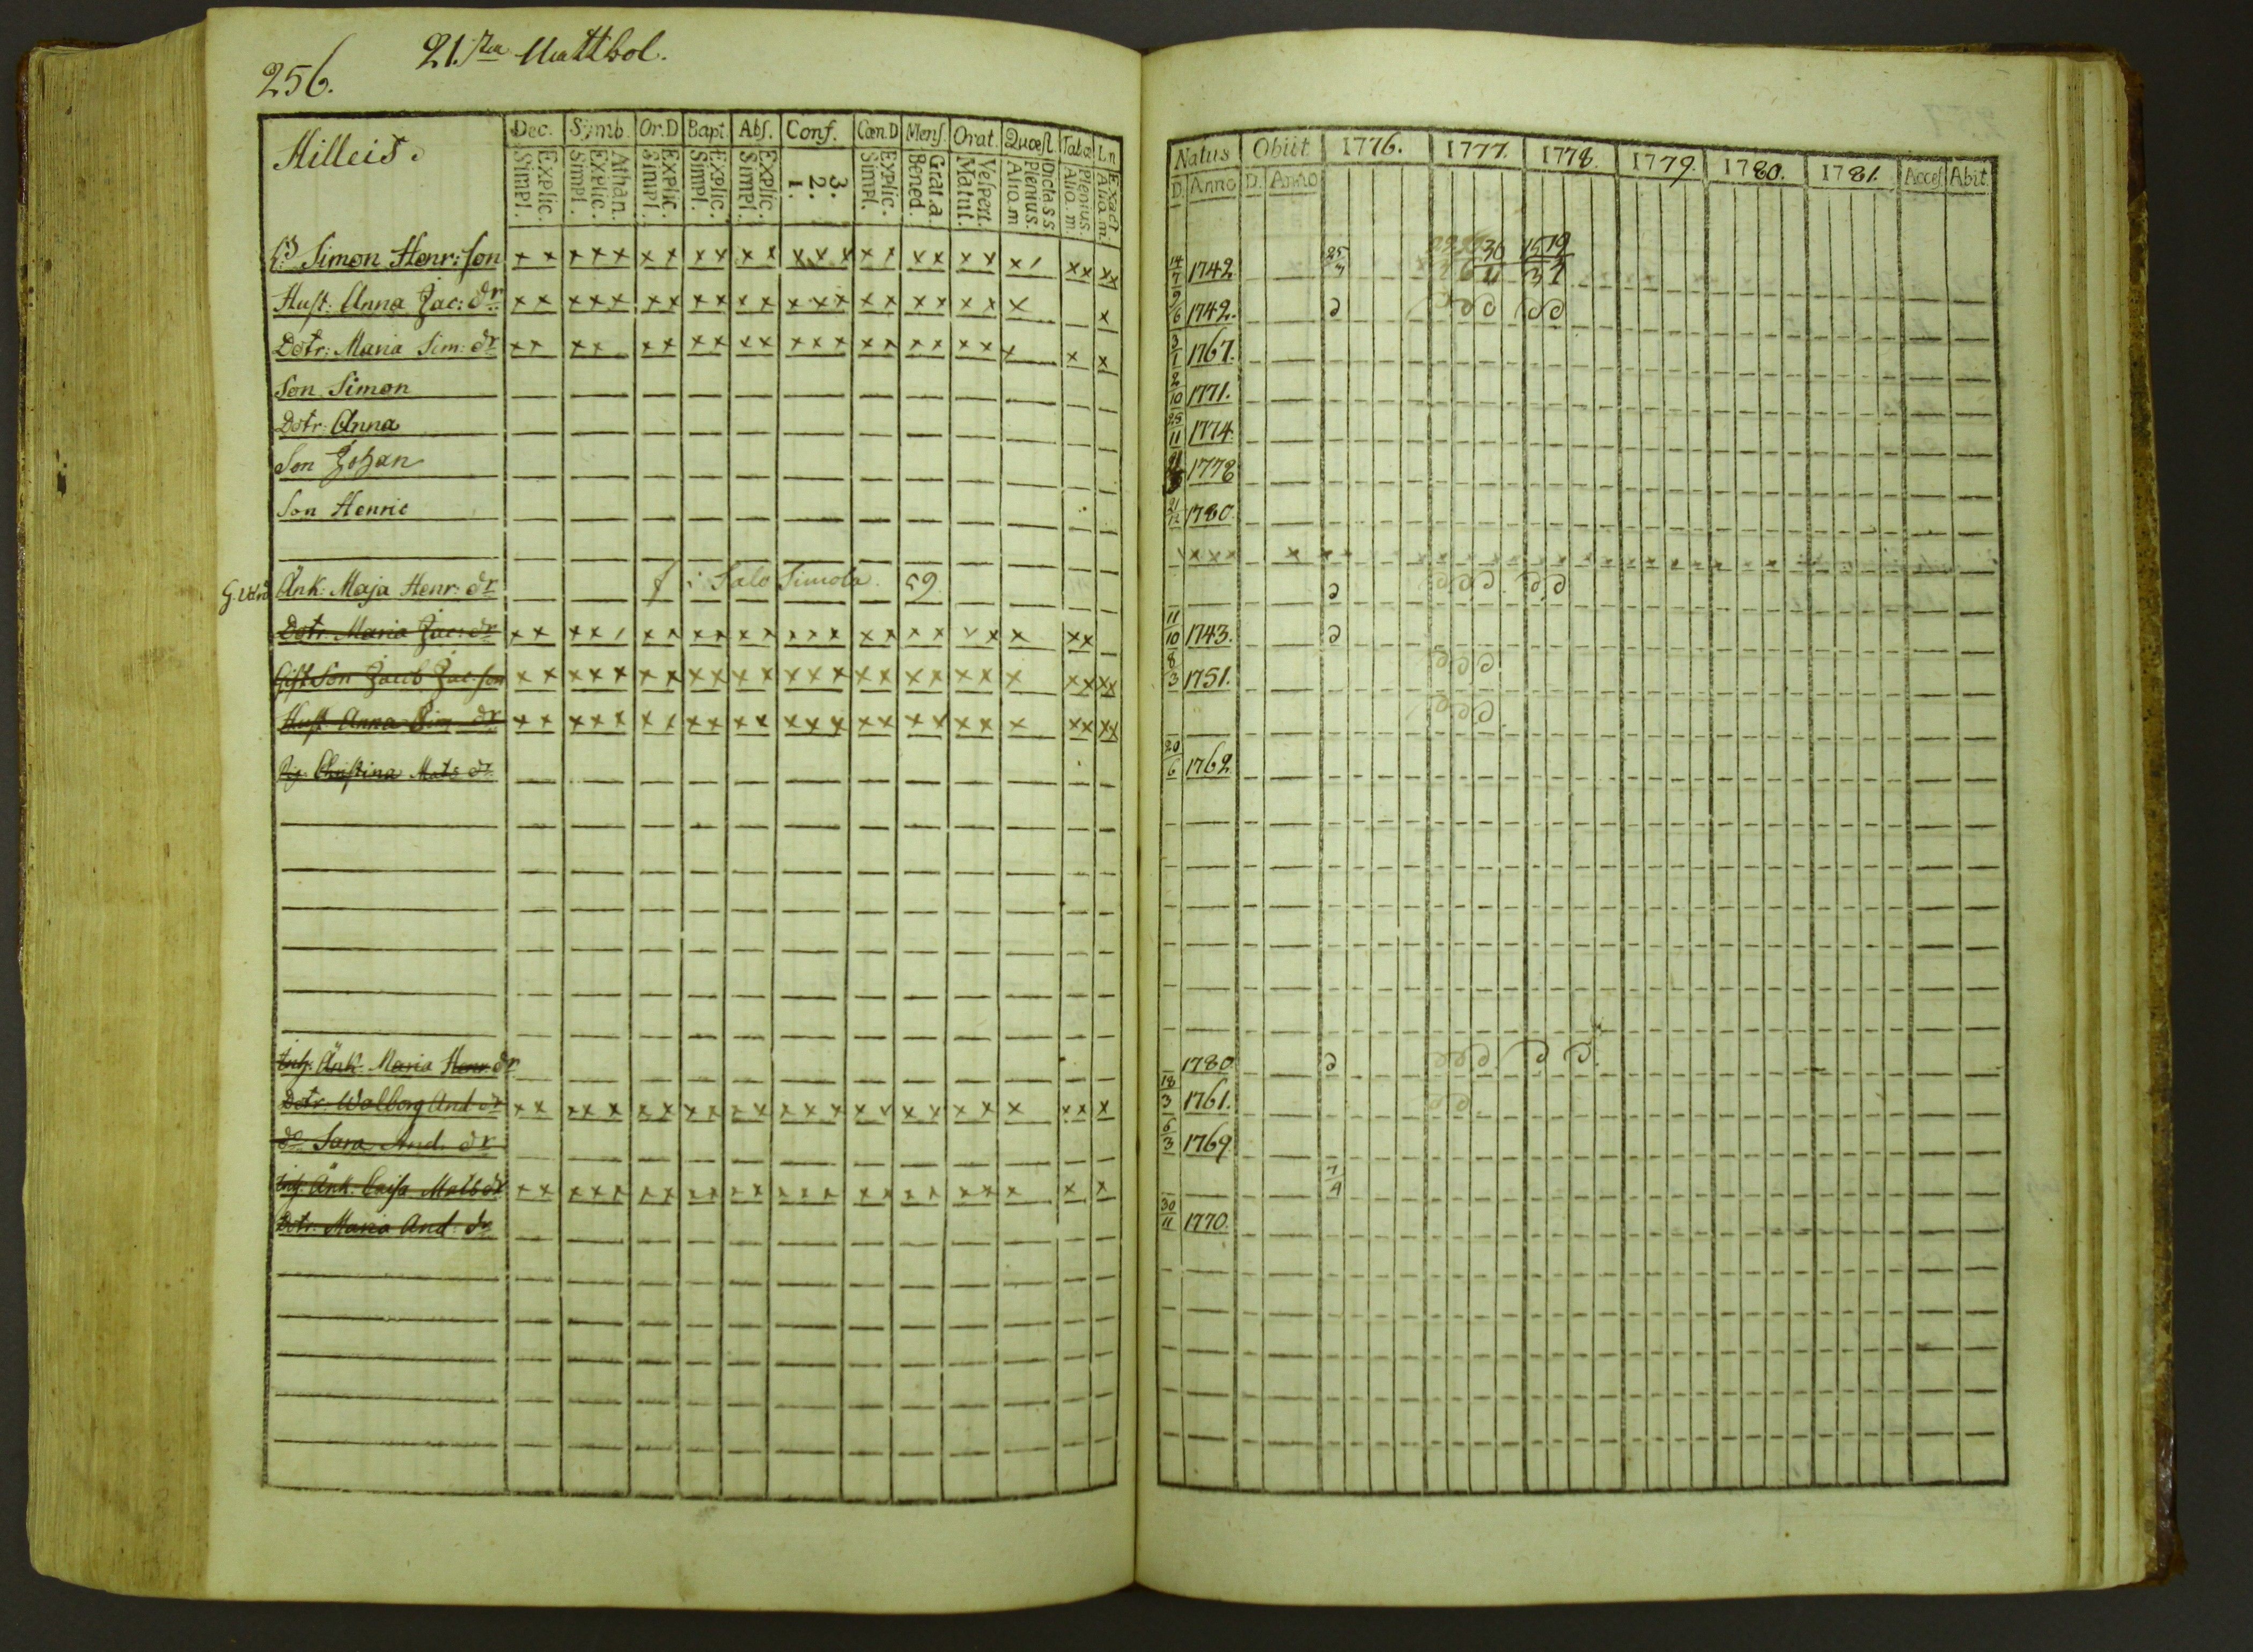 256.
21. Mattbol.
Hilleis.
Dec. Symb. Or.D Bapt. Abſ. Conf. Cœn.D Menſ. Orat. Quœſt Tabœ Ln
Explic. Simpl. Athan. Explic. Simpl. Explic. Simpl. Explic. Simpl. Explic. Simpl. 3. 2. 1. Explic. Simpl. Grat.a Bened. Veſpert. Matut. Dictass Plenius. Aliq.m Plenius. Aliq.m. Exact Aliq.m.
Natus Obiit 1776. 1777. 1778. 1779. 1780. 1781. Acceſ. Abit.
D. Anno D. Anno
Simon Henr: ſon 14/7 1742 25/7 30/11 15/3 19/7
Huſt: Anna Jac: dr 9/6 1742.
Dotr: Maria Sim: dr 3/1 1767.
Son Simon 2/10 1771.
Dotr: Anna 25/11 1774.
Son Johan 1778
Son Henric 21/12 1780.
Änk: Maja Henr: dr Salo Simola. 59
Dotr. Maria Jac: dr 11/10 1743.
Gift Son Jacob Jac: ſon 8/3 1751.
Huſt Anna Sim dr
Pig. Christina Mats dr 20/6 1762
Inh. Änk. Maria Henr dr 1780
Dotr. Walborg And dr 18/3 1761.
do Sara And. dr 6/3 1769
Inh. Änk. Caisa Mats dr 7/4
Dotr. Maria And. dr 30/11 1770.